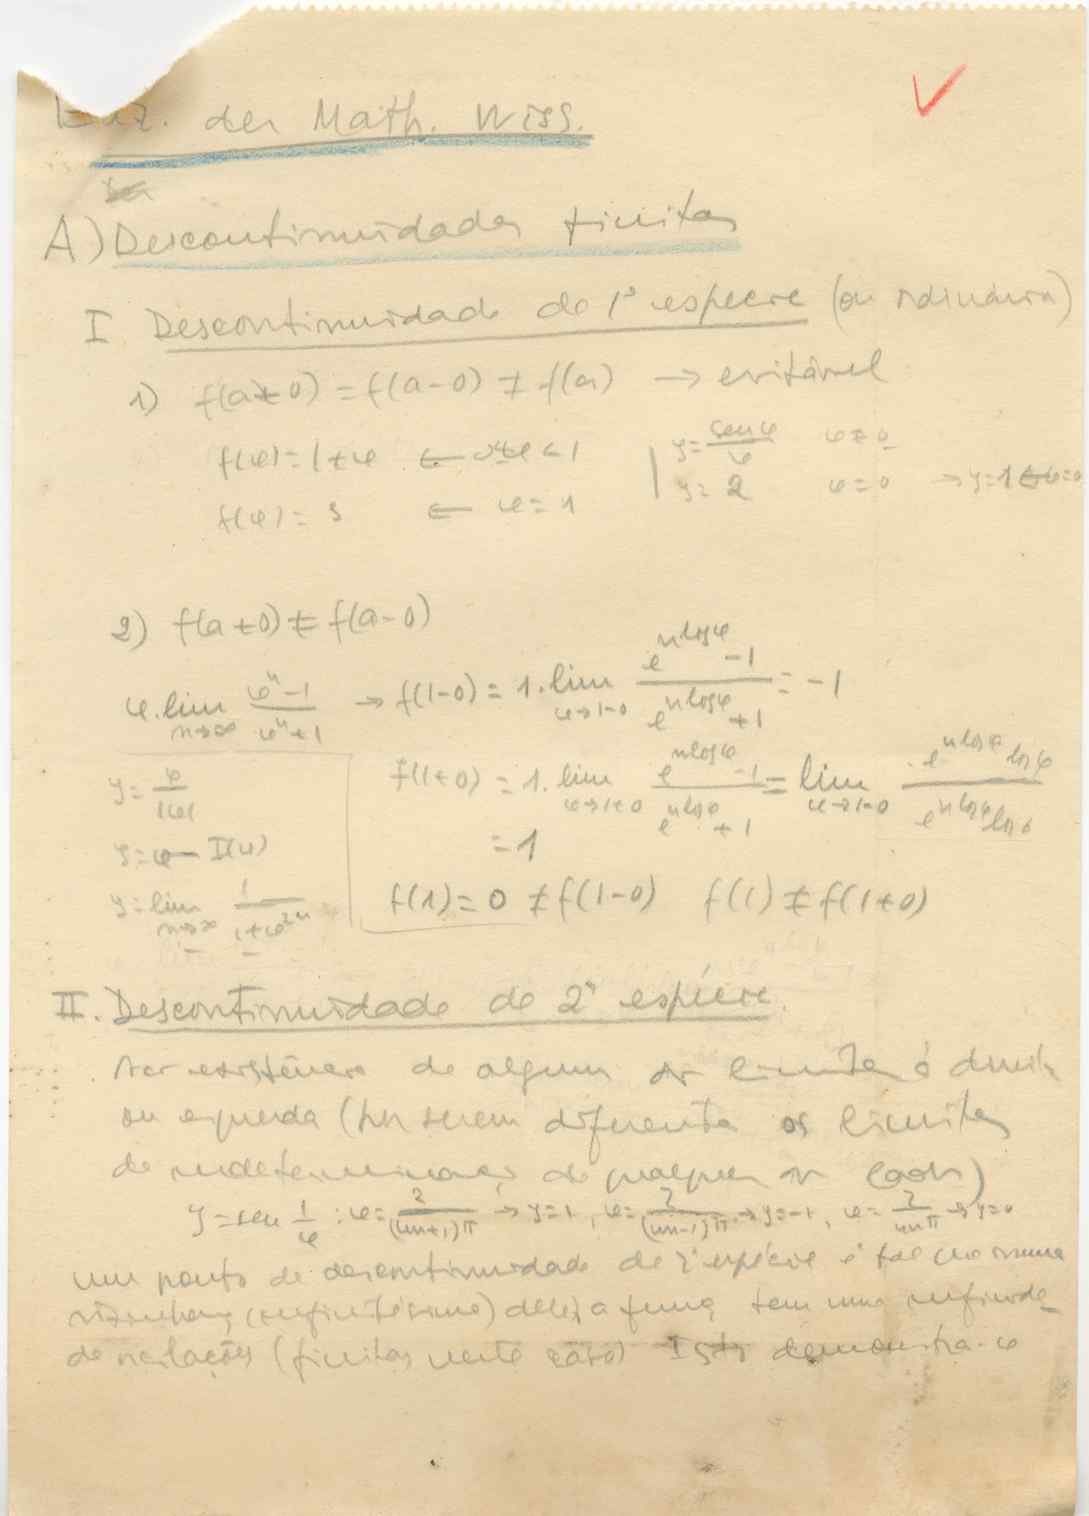 Enz. der Math. Wiss.
A) Descontinuidades finitas
I Descontinuidade de 1ª espécie (ou ordinária)
1) f(a+0) = f(a-0) ≠ f(a) → evitável
f(x) = 1+x ← 0<x<1 | y = sen x / x x≠0
f(x) = 3 ← x = 1 | y = 2 x=0 → y=1 ← x=0
2) f(a+0) ≠ f(a-0)
x. lim n→∞ (x^n - 1)/(x^n + 1) → f(1-0) = 1. lim x→1-0 (e^{n log x} - 1)/(e^{n log x} + 1) = -1
f(1+0) = 1. lim x→1+0 (e^{n log x} - 1)/(e^{n log x} + 1) = lim x→1+0 (e^{n log x} log x)/(e^{n log x} log x)
= 1
y = x/|x|
y = x - I(x)
y = lim n→∞ 1/(1+x^{2n})
f(1) = 0 ≠ f(1-0) f(1) ≠ f(1+0)
II. Descontinuidade de 2ª espécie
existência de algum limite à direita
ou esquerda (por serem diferentes os limites
de indeterminação de qualquer lado)
y = sen 1/x : x = 2/((4n+1)π) → y=1, x = 2/((4n-1)π) → y=-1, x = 2/(4nπ) → y=0
um ponto de descontinuidade de 2ª espécie é tal que numa
vizinhança (infinitésima) dele, a função tem uma infinidade
de oscilações (finitas neste caso) Isto demonstra-se